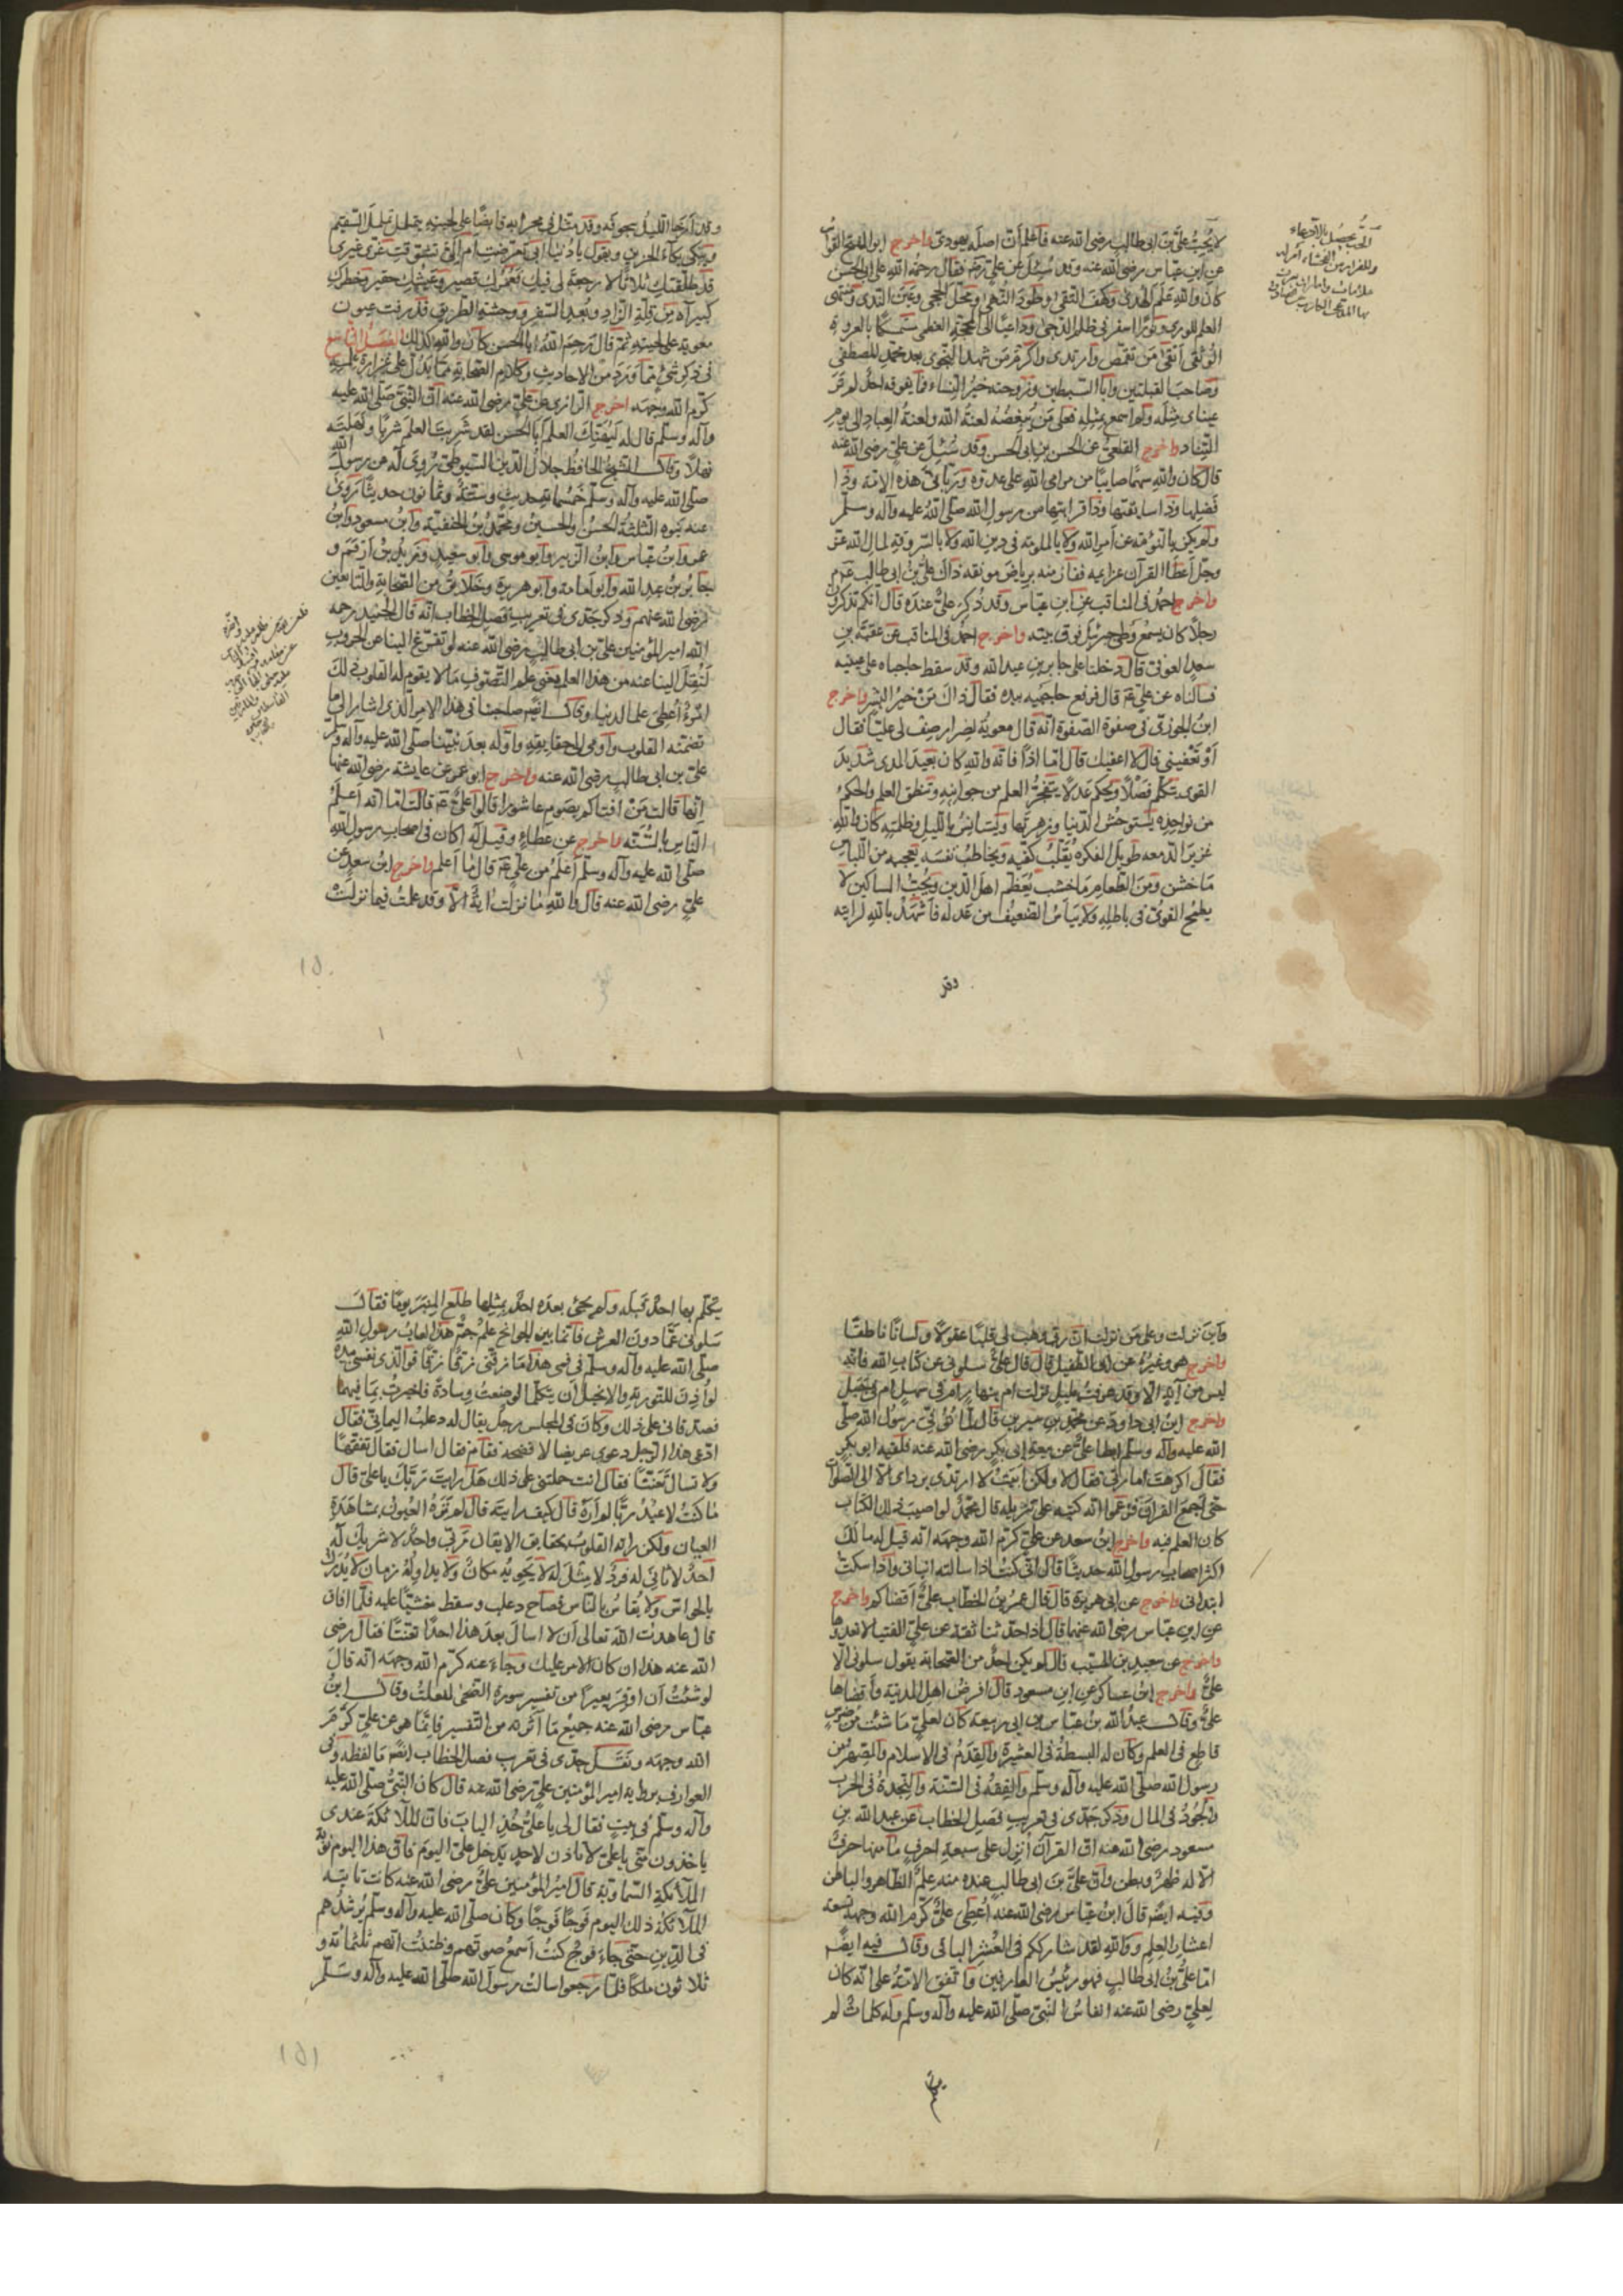 لا يُحِبُّ عليَّ بن ابى طالب رضى الله عنه فاعلم ان اصله يهودى واخرج ابو الفتح القواس
عن ابن عباس رضى الله عنه وقد سُئل عن على فقال رحمة الله على ابى الحسن
كان والله علم الهدى وكهف التقى وطود النهى ومحل الحجى وغيث الندى ومنتهى
العلم للورى ونورا اسفر فى ظلم الدجى وداعيا الى المحجة العظمى متمسكا بالعروة
الوثقى اتقى من تقمص وارتدى واكرم من شهد النجوى بعد محمد المصطفى
وصاحب القبلتين وابا السبطين وزوجته خير النساء فما يفوقه احد لم تر
عيناى مثله ولم اسمع بمثله فعلى من يبغضه لعنة الله ولعنة العباد الى يوم
التناد واخرج القلعى عن الحسن بن ابى الحسن وقد سُئل عن على رضى الله عنه
قال كان والله سهما صايبا من مرامى الله على عدوه وربانى هذه الامة وذا
فضلها وذا سابقتها وذا قرابتها من رسول الله صلى الله عليه وآله وسلم
ولم يكن بالنومة عن امر الله ولا بالملومة فى دين الله ولا بالسروقة لمال الله عز
وجل اعطا القرآن عزايمه ففاز منه برياض مونقه ذاك على بن ابى طالب
واخرج احمد فى المناقب عن ابن عباس وقد ذُكر علىّ عنده قال انكم تذكرون
رجلا كان يسمع وطى جبرئيل فوق بيته واخرج احمد فى المناقب عن عقبة بن
سعد العوفى قال دخلنا على جابر بن عبد الله وقد سقط حاجباه على عينيه
فسالناه عن على قال فرفع حاجبيه بيده فقال ذاك من خير البشر واخرج
ابن الجوزى فى صفوة الصفوة انه قال معوية لضرار صف لى عليا فقال
او تعفينى قال لا اعفيك قال اما اذا فانه والله كان بعيد المدى شديد
القوى يتكلم فصلا ويحكم عدلا يتفجر العلم من جوانبه وتنطق العلم والحكمة
من نواجده يستوحش الدنيا وزهرتها ويستانس بالليل وظلمته كان والله
غزير الدمعه طويل الفكره يقلب كفيه ويخاطب نفسه يعجبه من اللباس
ما خشن ومن الطعام ما خشب يعظم اهل الدين ويحب المساكين لا
يطمع القوى فى باطله ولا يياس الضعيف من عدله فاشهد بالله لرايته
وقد
الحب يحصل بالادعاء
وقد ارخى الليل سجوفه وقد مثل فى محرابه قابضا على لحيته يتململ تململ السقيم
ويبكى بكاء الحزين ويقول يا دنيا ابى تعرضت ام الىّ تشوقت غرى غيرى
قد طلقتك ثلاثا لا رجعة لى فيك فعمرك قصير وعيشك حقير وخطرك
كبير آه من قلة الزاد وبعد السفر ووحشة الطريق قذرفت عيون
معوية على لحيته ثم قال رحم الله ابا الحسن كان والله كذلك الفصل التاسع
فى ذكر شئ مما ورد من الاحاديث وكلام الصحابة مما يدل على غزارة علمه
كرم الله وجهه اخرج الرازى عن على رضى الله عنه ان النبى صلى الله عليه
وآله وسلم قال له ليهنك العلم ابا الحسن لقد شربت العلم شربا ونهلته
نهلا وقال الشيخ الحافظ جلال الدين السيوطى رُوى له عن رسول الله
صلى الله عليه وآله وسلم خمسماية حديث وستة وثمانون حديثا روى
عنه بنوه الثلثة الحسن والحسين ومحمد بن الحنفية وابن مسعود وابن
عمر وابن عباس وابن الزبير وابو موسى وابو سعيد وزيد بن ارقم و
جابر بن عبد الله وابو امامة وابو هريرة وخلايق من الصحابة والتابعين
رضى الله عنهم وذكر جدى فى تعريب فصل الخطاب انه قال الجنيد رحمه
الله امير المؤمنين على بن ابى طالب رضى الله عنه لو تفرغ الينا عن الحروب
لنقل الينا عنه من هذا العلم يعنى علم التصوف ما لا يقوم له القلوب ذلك
امرؤ أعطى علما لدنيا وقال ايضا صاحبنا فى هذا الامر الذى اشار الى ما
تضمنه القلوب واومى الى حقايقه واوله بعد نبينا صلى الله عليه وآله وسلم
على بن ابى طالب رضى الله عنه واخرج ابو عمر عن عايشة رضى الله عنها
انها قالت من افتاكم بصوم عاشورا قالوا علىّ قالت اما انه اعلم
الناس بالسنة واخرج عن عطاء وقيل له اكان فى اصحاب رسول الله
صلى الله عليه وآله وسلم اعلم من على قال ما اعلم واخرج ابن سعد عن
على رضى الله عنه قال والله ما نزلت اية الا وقد علمت فيما نزلت
١٥٠
واين نزلت وعلى من نزلت ان ربى وهب لى قلبا عقولا ولسانا ناطقا
واخرج هو وغيره عن ابى الطفيل قال قال علىّ سلونى عن كتاب الله فانه
ليس من آية الا وقد عرفت بليل نزلت ام بنهار ام فى سهل ام فى جبل
واخرج ابن ابى داود عن محمد بن سيرين قال لما توفى رسول الله صلى
الله عليه وآله وسلم ابطا علىّ عن بيعة ابى بكر رضى الله عنه فلقيه ابو بكر
فقال اكرهت امارتى فقال لا ولكن آليت لا ارتدى بردائى الا الى الصلوة
حتى اجمع القرآن فزعموا انه كتبه على تنزيله قال محمد لو اصيب ذلك الكتاب
كان العلم فيه واخرج ابن سعد عن على كرم الله وجهه انه قيل له ما لك
اكثر اصحاب رسول الله حديثا قال انى كنت اذا سالته انبانى واذا سكت
ابتدانى واخرج عن ابى هريرة قال قال عمر بن الخطاب علىّ اقضاكم واخرج
عن ابن عباس رضى الله عنهما قال اذا حدثنا ثقة عن على الفتيا لا نعدوها
واخرج عن سعيد بن المسيب قال لم يكن احد من الصحابة يقول سلونى الا
علىّ واخرج ابن عساكر عن ابن مسعود قال افرض اهل المدينة واقضاها
علىّ وقال عبد الله بن عباس بن ابى ربيعة كان لعلى ما شئت من ضرس
قاطع فى العلم وكان له البسطة فى العشيرة والقدم فى الاسلام والصهر من
رسول الله صلى الله عليه وآله وسلم والفقه فى السنة والنجدة فى الحرب
والجود فى المال وذكر جدى فى تعريب فصل الخطاب عن عبد الله بن
مسعود رضى الله عنه ان القرآن أنزل على سبعة احرف ما منها حرف
الا له ظهر وبطن وان على بن ابى طالب عنده منه علم الظاهر والباطن
وفيه ايضا قال ابن عباس رضى الله عنه أعطى علىّ كرم الله وجهه تسعة
اعشار العلم ووالله لقد شارككم فى العشر الباقى وقال فيه ايضا
اما على بن ابى طالب فهو رئيس العارفين واتفق الامة على انه كان
لعلى رضى الله عنه انفاس النبى صلى الله عليه وآله وسلم وله كلمات لم
يتكلم
يتكلم بها احد قبله ولم يجئ بعده احد بمثلها طلع المنبر يوما فقال
سلونى عما دون العرش فانما بين الجوانح علم جمّ هذا لعاب رسول الله
صلى الله عليه وآله وسلم فى فمى هذا ما زقنى زقا زقا فوالذى نفسى بيده
لو أذن للتورية والانجيل ان يتكلما لوضعت وسادة فاخبرت بما فيهما
فصدقانى على ذلك وكان فى المجلس رجل يقال له دعلب اليمانى فقال
ادعى هذا الرجل دعوى عريضا لا فضحنه فقام فقال اسال فقال تفقها
ولا تسال تعنتا فقال انت حملتنى على ذلك هل رايت ربك يا على قال
ما كنت لاعبد ربا لم اره قال كيف رايته قال لم تره العيون بمشاهدة
العيان ولكن راته القلوب بحقايق الايقان ربى واحد لا شريك له
احد لا ثانى له فرد لا مثل له لا يحويه مكان ولا يداوله زمان لا يُدرك
بالحواس ولا يقاس بالناس فصاح دعلب وسقط مغشيا عليه فلما افاق
قال عاهدت الله تعالى ان لا اسال بعد هذا احدا تعنتا فقال رضى
الله عنه هذا ان كان الامر عليك وجاء عنه كرم الله وجهه انه قال
لو شئت ان اوقر بعيرا من تفسير سورة الضحى لفعلت وقال ابن
عباس رضى الله عنه جميع ما آثرته من التفسير فانما هو عن على كرم
الله وجهه ونقل جدى فى تعريب فصل الخطاب ايضا ما لفظه وفى
العوارف برواية امير المؤمنين على رضى الله عنه قال كان النبى صلى الله عليه
وآله وسلم فى بيت فقال لى يا علىّ خذ الباب فان الملائكة عندى
ياخذون منى يا على لا تاذن لاحد يدخل علىّ اليوم فان هذا اليوم نوبة
الملائكة السماوية قال امير المؤمنين علىّ رضى الله عنه كانت تاتيه
الملائكة ذلك اليوم فوجا فوجا وكان صلى الله عليه وآله وسلم يرشدهم
فى الدين حتى جاء فوج كنت اسمع صوتهم وظننت انهم ثلثمائة و
ثلاثون ملكا فلما رجعوا سالت رسول الله صلى الله عليه وآله وسلم
١٥١